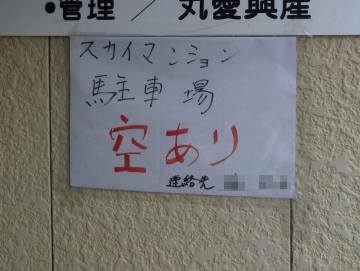 •管理 / 丸愛興産
スカイマンション
駐車場
空あり
連絡先